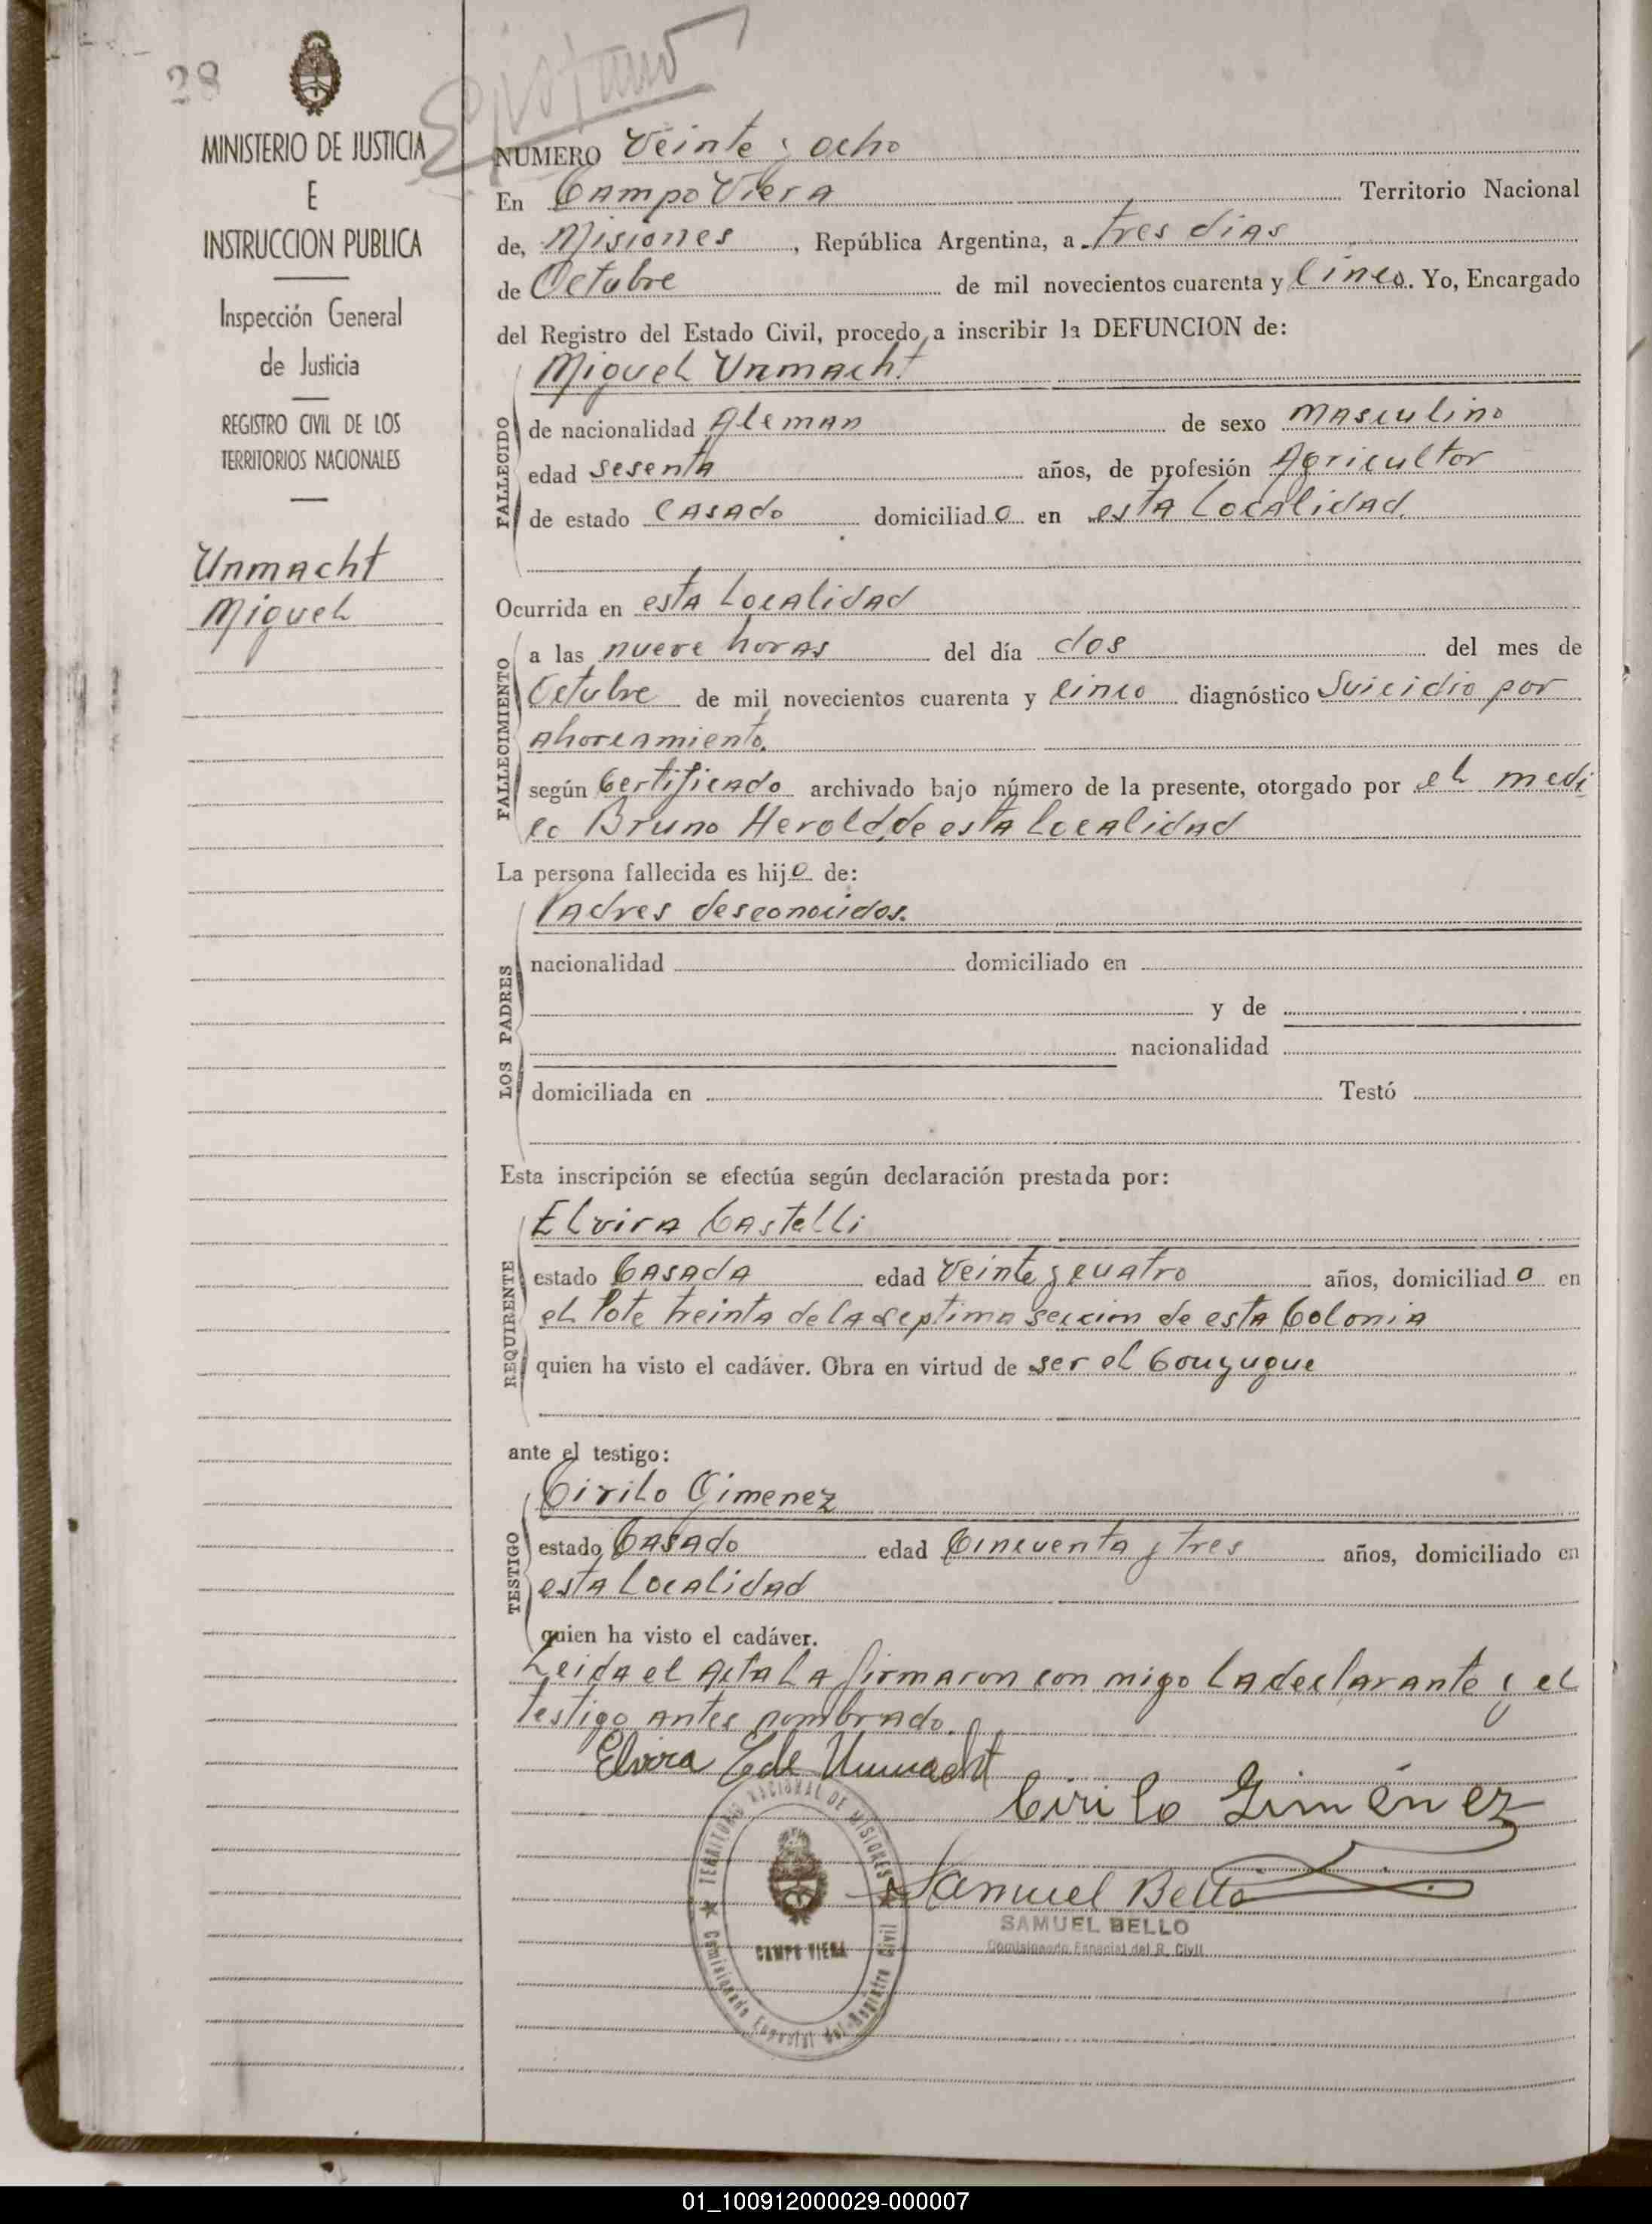 28
MINISTERIO DE JUSTICIA
E
INSTRUCCION PUBLICA
Inspección General
de Justicia
REGISTRO CIVIL DE LOS
TERRITORIOS NACIONALES
Unmacht
Miguel
NUMERO Veinte y ocho
En Campo Viera Territorio Nacional
de, Misiones, República Argentina, a tres dias
de Octubre de mil novecientos cuarenta y Cinco. Yo, Encargado
del Registro del Estado Civil, procedo a inscribir la DEFUNCION de:
Miguel Unmacht
FALLECIDO
de nacionalidad Aleman de sexo masculino
edad sesenta años, de profesión Agricultor
de estado Casado domiciliado en esta Localidad
Ocurrida en esta Localidad
FALLECIMIENTO
a las nueve horas del día dos del mes de
Octubre de mil novecientos cuarenta y cinco diagnóstico Suicidio por
ahorcamiento.
según Certificado archivado bajo número de la presente, otorgado por el medi
co Bruno Herold, de esta Localidad
La persona fallecida es hijo de:
LOS PADRES
Padres desconocidos.
nacionalidad domiciliado en
y de
nacionalidad
domiciliada en Testó
Esta inscripción se efectúa según declaración prestada por:
REQUIRENTE
Elvira Castelli
estado Casada edad Veinte y cuatro años, domiciliado en
el lote treinta de la septima seccion de esta Colonia
quien ha visto el cadáver. Obra en virtud de ser el Conyugue
ante el testigo:
TESTIGO
Cirilo Gimenez
estado Casado edad Cincuenta y tres años, domiciliado en
esta Localidad
quien ha visto el cadáver.
Leida el Acta La firmaron con migo La declarante y el
testigo antes nombrado.
Elvira C de Unmacht
Cirilo Giménez
Samuel Bello
SAMUEL BELLO
Comisionado Especial del R. Civil
TERRITORIO NACIONAL DE MISIONES
CAMPO VIERA
Comisionado Especial del Registro Civil
01_100912000029-000007